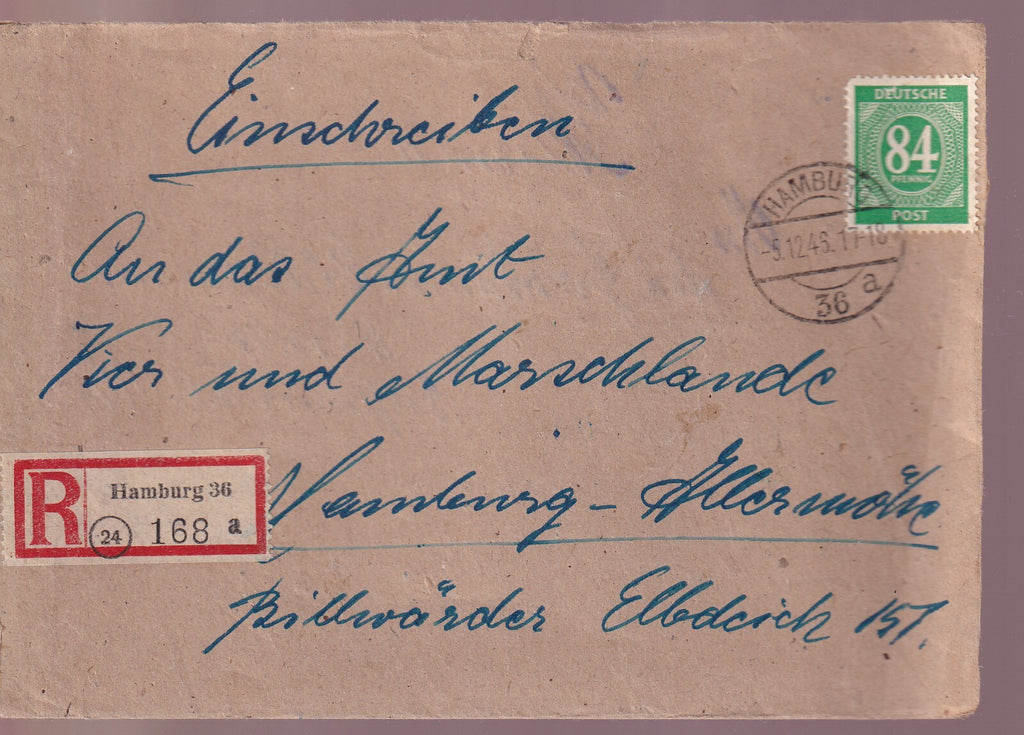 Einschreiben
DEUTSCHE
84
PFENNIG
POST
HAMBURG
-5.12.46.17-18
36 a
An das Amt
Vier und Marschlande
R
Hamburg 36
24
168 a
Hamburg - Allermöhe
Billwärder Elbdeich 157.